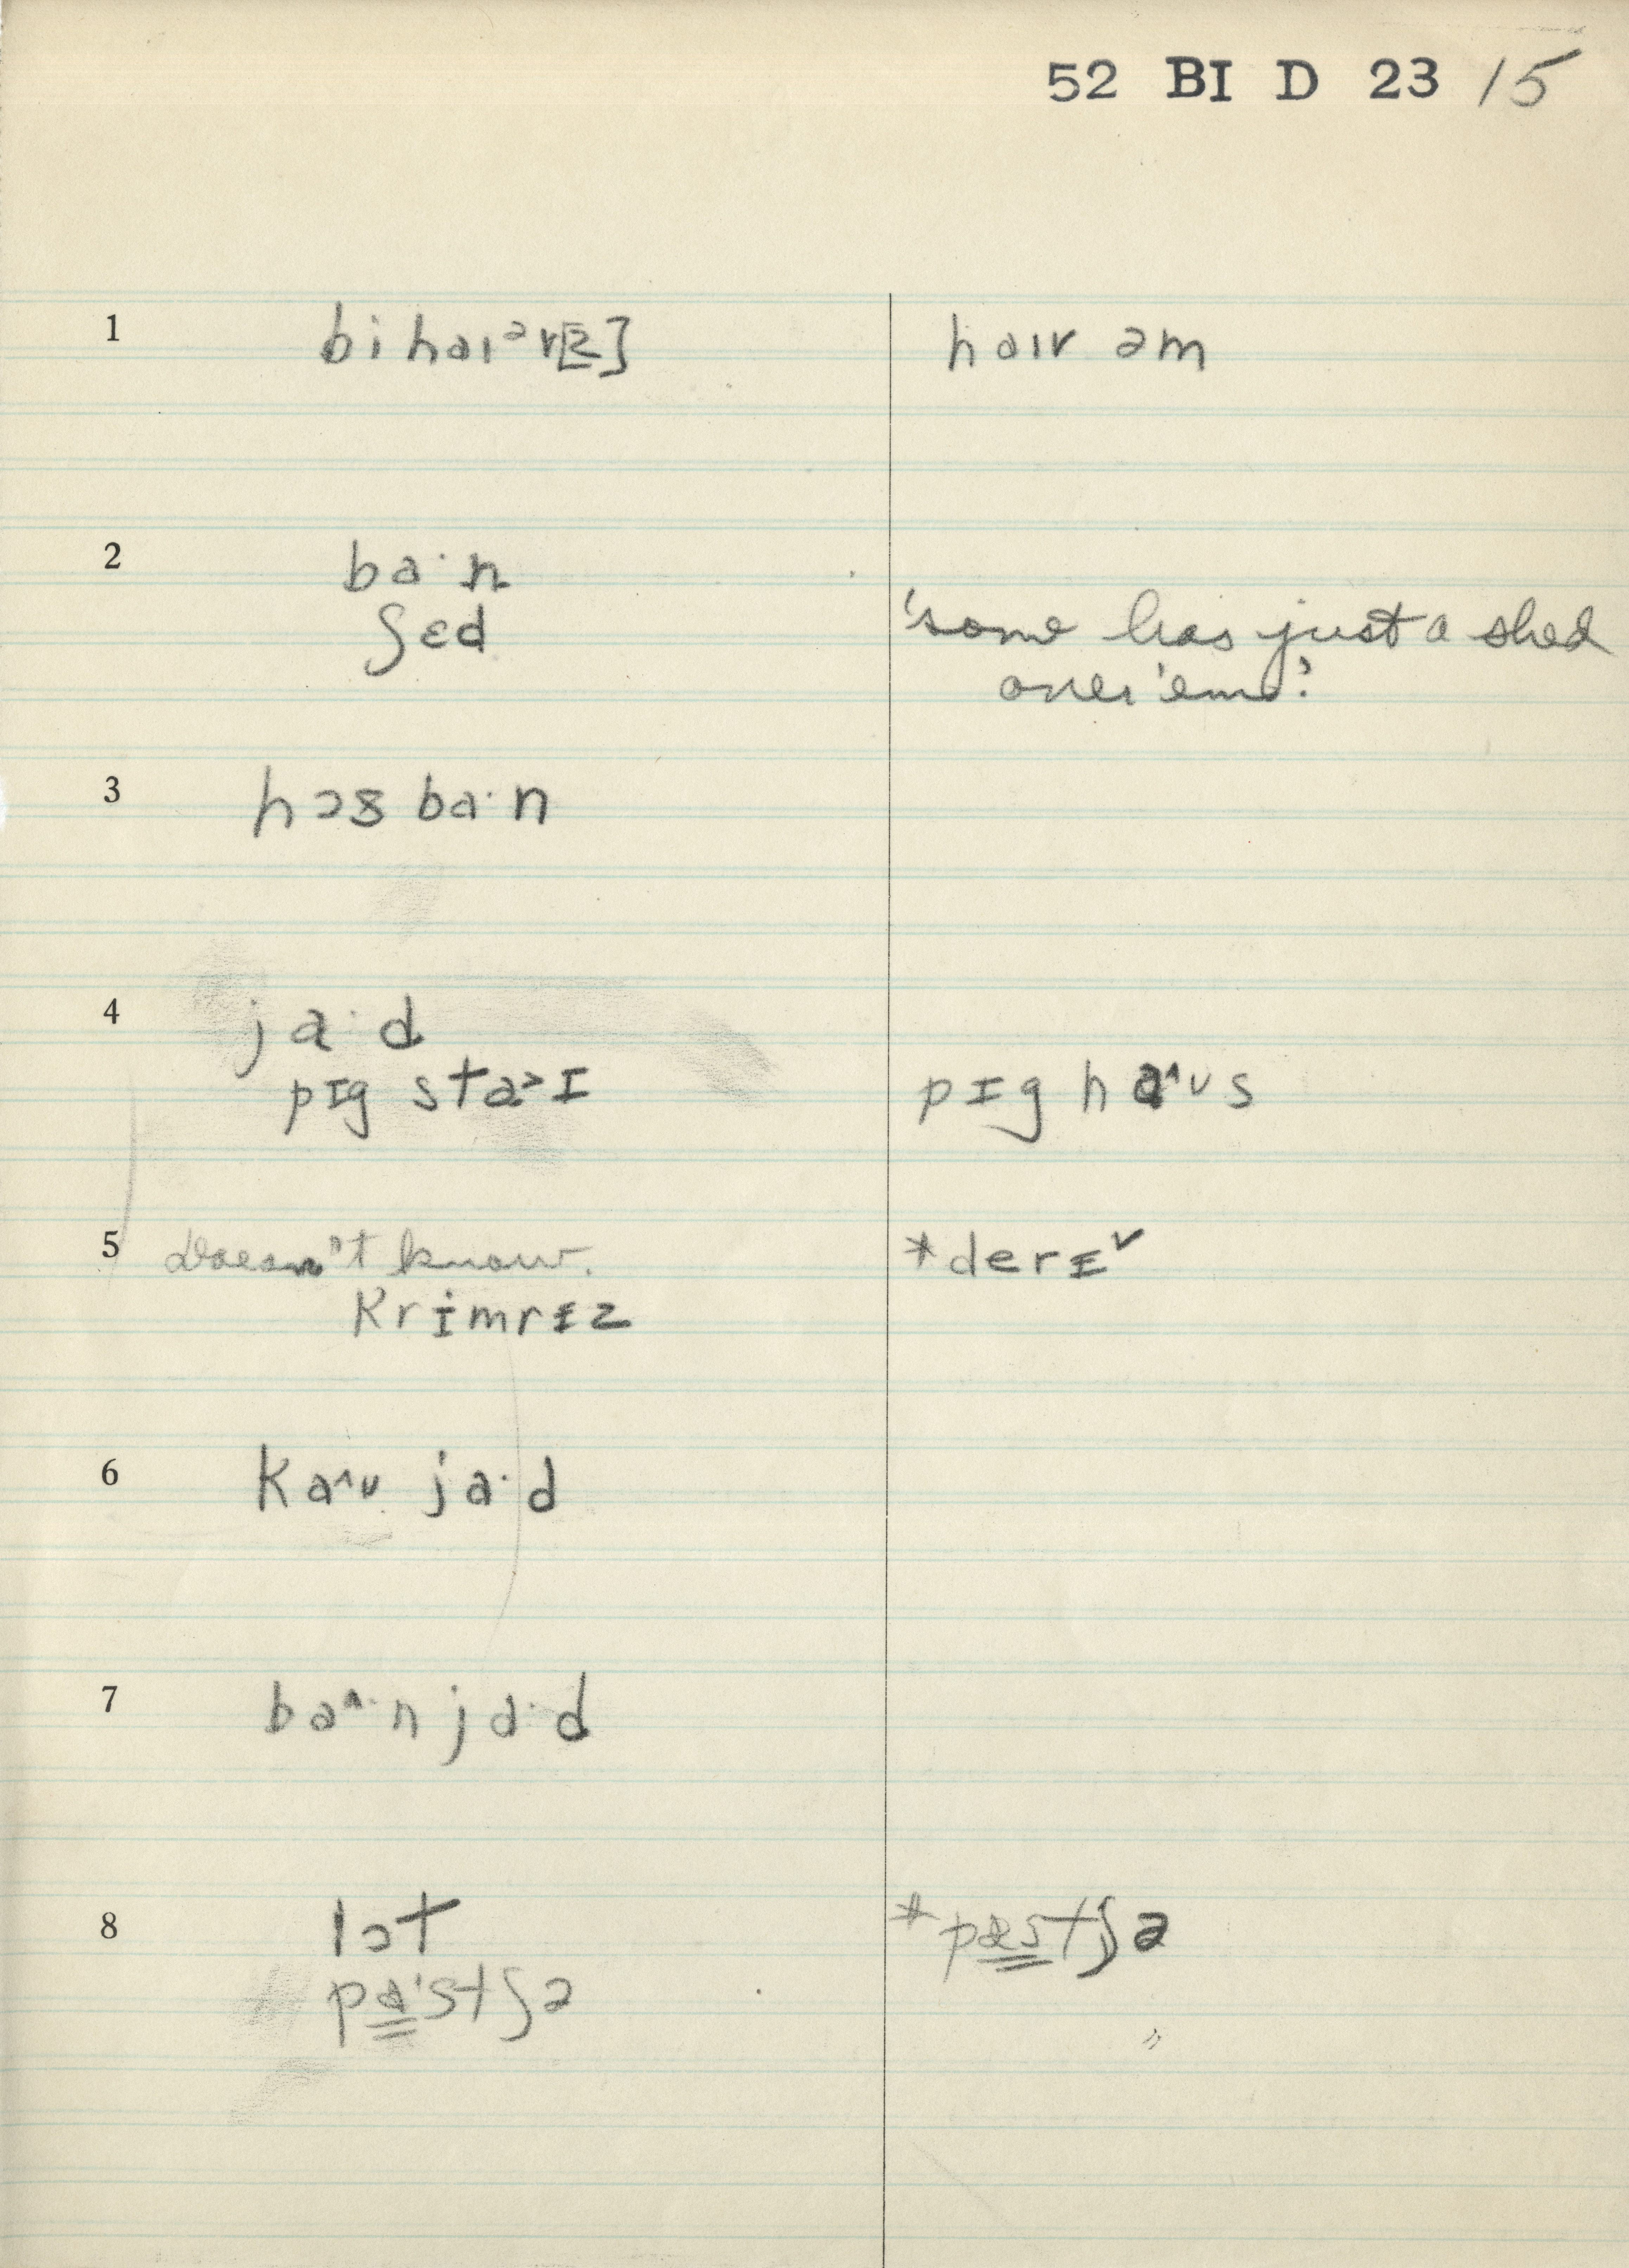 52 BI D 23 15
1 bihaɪᵊr[z] haɪr əm
2 ba·n
ʃɛd 'some has just a shed
over 'em.'
3 hɔs ba·n
4 ja·d
pɪg sta>ɪ pɪg ha^ʊs
5 Doesn't know. *derɪˇ
krɨmrɪz
6 ka^ʊ ja·d
7 ba^·n ja·d
8 lɔt *pæstʃə
pa·stʃə
"